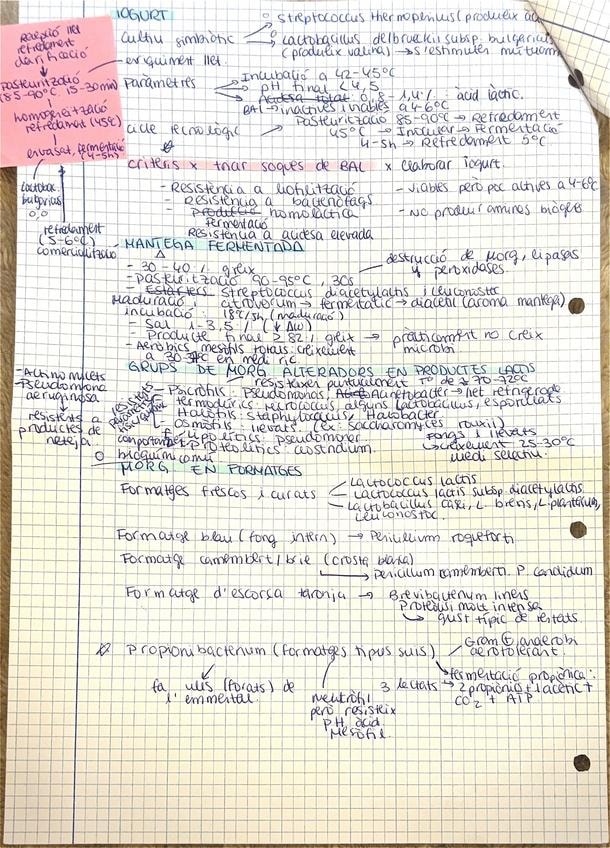 IOGURT
Cultiu simbiòtic
streptococcus thermophilus (produeix
Lactobacillus delbrueckii subsp. bulgaricus
(produeix valina) → s'estimulen mutuam
enriquiment llet.
Paràmetres
Incubació a 42-45ºC
pH final < 4,5
Acidesa total: 0,8-1,4% àcid làctic.
BAL → inactives inviables a 4-6ºC
cicle tecnològic
Pasteurització 85-90ºC → Refredament
45ºC → Incubar → Fermentació
4-5h → Refredament 5ºC
Recepció llet
refredament
clarificació
Pasteurització
(85-90ºC, 15-30min)
homogeneització
refredament (45ºC)
envasat, fermentació
(4-5h)
Lactobac.
bulgarius
refredament
(5-6ºC)
comercialització
criteris x triar soques de BAL x elaborar iogurt.
- Resistència a liofilització
- Resistència a bacteriòfags
- Producció homolàctica
Fermentació
Resistència a acidesa elevada
- viables però poc actives a 4-6ºC
- No produir amines biògens
MANTEGA FERMENTADA
- 30-40% greix
- Pasteurització 90-95ºC, 30s
destrucció de Morg, lipases
y peroxidases.
- Estarters Streptococcus diacetylactis i leuconostoc
Maduració i citrovorum → fermentatic → diacetil (aroma mantega)
incubació: 18ºC/5h (maduració)
- Sal 1-3,5% (↓ aw)
- Producte final ≥ 82% greix → pràcticament no creix
microbi
- Aeròbics mesòfils totals: creixement
a 30-37ºC en medi ric
GRUPS DE MORG ALTERADORS EN PRODUCTES LÀCTIS
resisteixen puntualment Tº de 70-72ºC
- Actinomicets
- Pseudomona
aeruginosa
resistents
productes de
neteja
resistents
paràmetres
fisicoquímic
- Psicròfils: Pseudomonas, Acinetobacter → llet refrigerada
- termodúrics: micrococcus, alguns lactobacillus, esporulats
- Halòfils: Staphylococcus, Halobacter
- Osmòfils: llevats (ex: saccharomyces rouxii)
comportament
bioquímic comú
+ Lipolítics: pseudomones
+ Proteolítics: clostridium.
Fongs i llevats
creixement 25-30ºC
medi selectiu.
MORG EN FORMATGES
Formatges frescos i curats
Lactococcus lactis
Lactococcus lactis subsp. diacetylactis
Lactobacillus casei, L. brevis, L. plantarum,
Leuconostoc
Formatge blau (fong intern) → Penicillium roqueforti
Formatge camembert/brie (crosta blanca)
Penicillum camemberti. P. candidum
Formatge d'escorsa taronja → Brevibacterium linens
Proteòlisi molt intensa
gust típic de
Propionibacterium (formatges tipus suís)
Gram ⊕, anaerobi
aerotolerant.
fa ulls (forats) de
l'emmental.
neutròfil
però resisteix
pH àcid.
Mesòfil.
fermentació propiònica:
3 lactats → 2 propiònic + 1 acètic +
CO2 + ATP